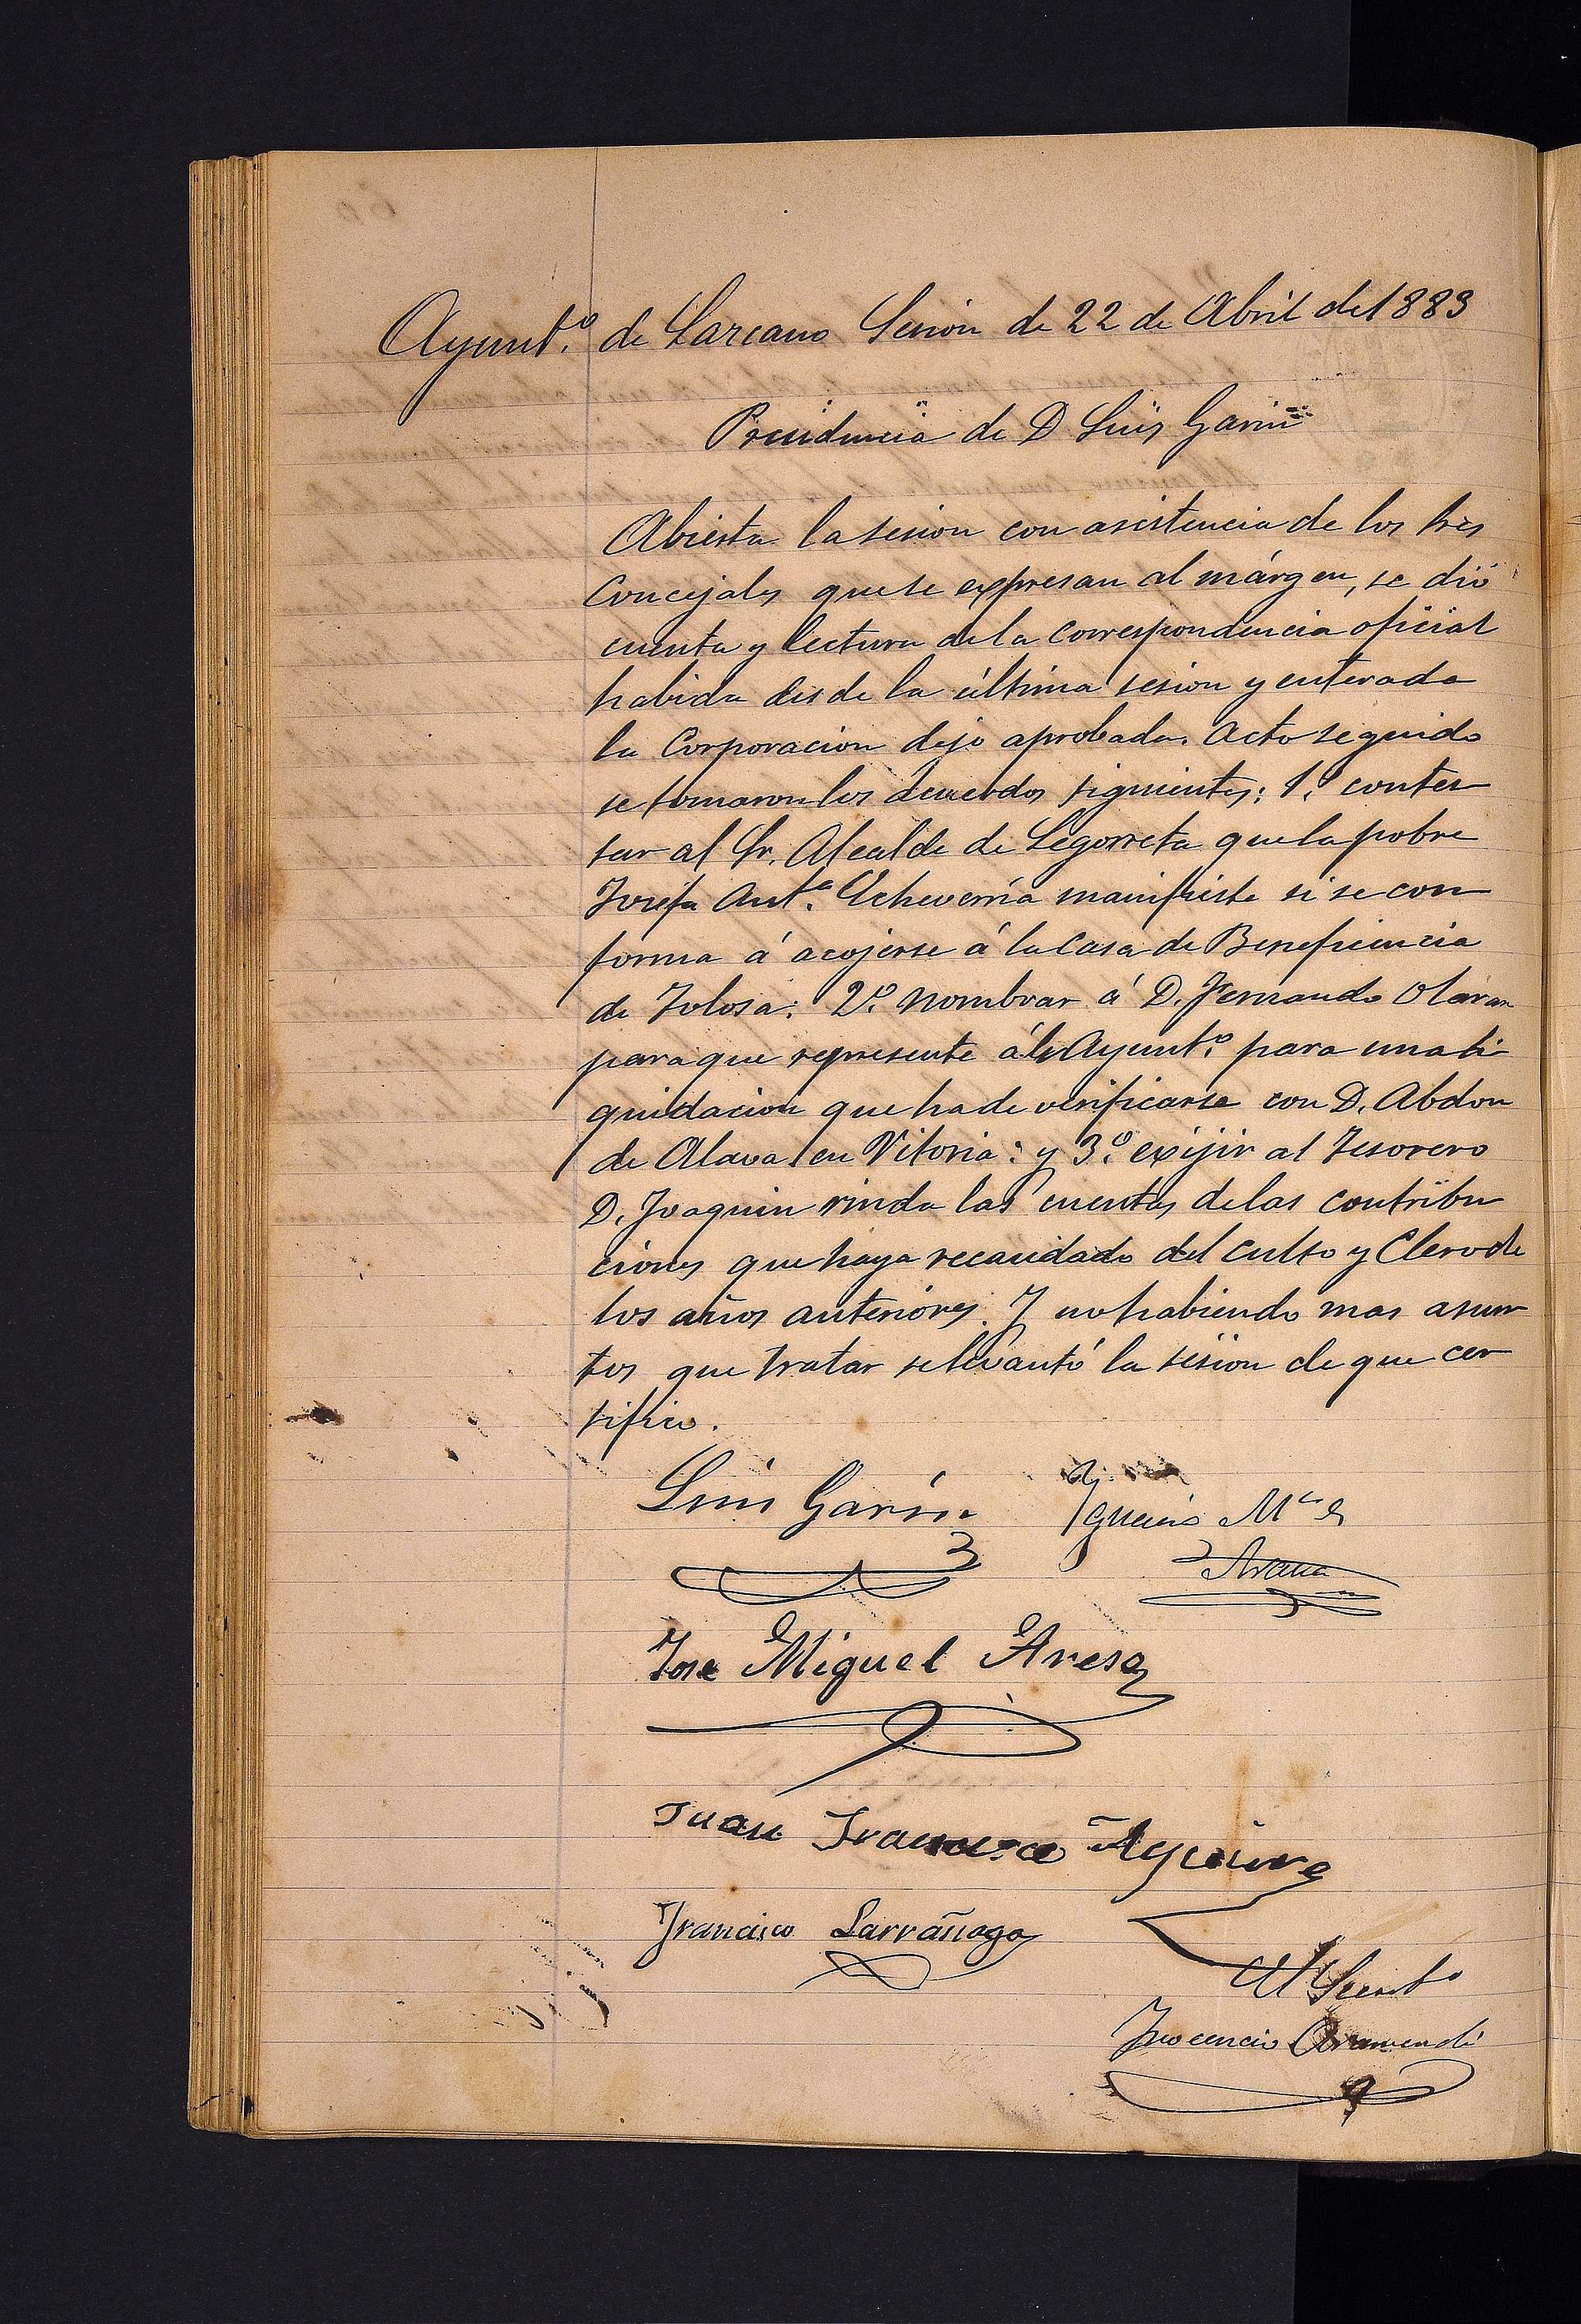 Ayunt.º de Lazcano Sesión de 22 de Abril de 1883
Presidencia de D Luis Garin
Abierta la sesion con asistencia de los tres
Concejales que se expresan al márgen, se dió
cuenta y lectura de la correspondencia oficial
habida desde la última sesion y enterada
la Corporacion dejo aprobada. Acto seguido
se tomaron los acuerdos siguientes: 1.º contes
tar al Sr. Alcalde de Legorreta que la pobre
Josefa Ant.ª Echeverría manifieste si se con
forma á acojerse á la Casa de Beneficencia
de Tolosa: 2.º nombrar á D. Fernando Olaran
para que represente á le Ayunt.º para una li
quidacion que ha de verificarse con D. Abdon
de Alava en Vitoria: y 3.º exijir al Tesorero
D. Joaquin rinda las cuentas de las contribu
ciones que haya recaudado del culto y Clero de
los años anteriores. Y no habiendo mas asun
tos que tratar se levantó la sesion de que cer
tifico.
Luis Garin Ygnacio M.ª
Arana
Jose Miguel Aresa
Juan Francisco Aguirre
Francisco Larrañaga
El Secret.º
Inocencio Aramendi